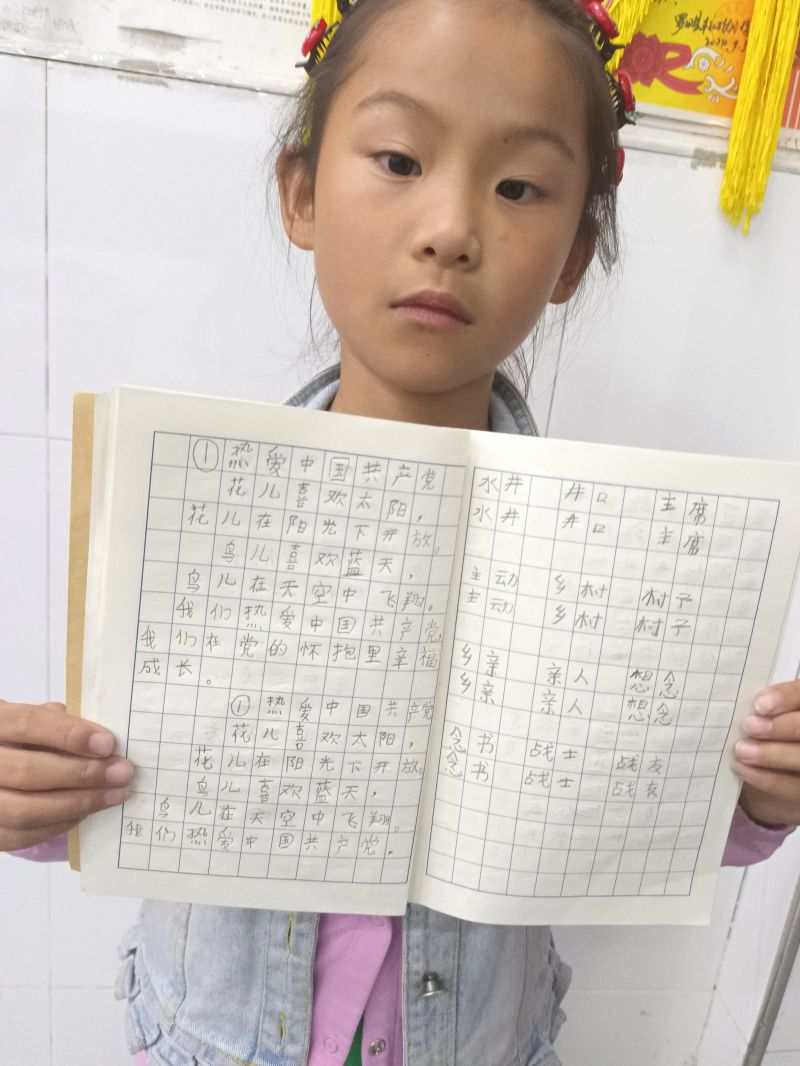 ① 热爱中国共产党
花儿喜欢太阳，
花儿在阳光下开放。
鸟儿喜欢蓝天，
鸟儿在天空中飞翔。
我们热爱中国共产党
我们在党的怀抱里幸福
成长。
① 热爱中国共产党
花儿喜欢太阳，
花儿在阳光下开放。
鸟儿喜欢蓝天，
鸟儿在天空中飞翔。
我们热爱中国共产党.
水井 井口 主席
水井 井口 主席
主动 乡村 村子
主动 乡村 村子
乡亲 亲人 想念
乡亲 亲人 想念
念书 战士 战友
念书 战士 战友